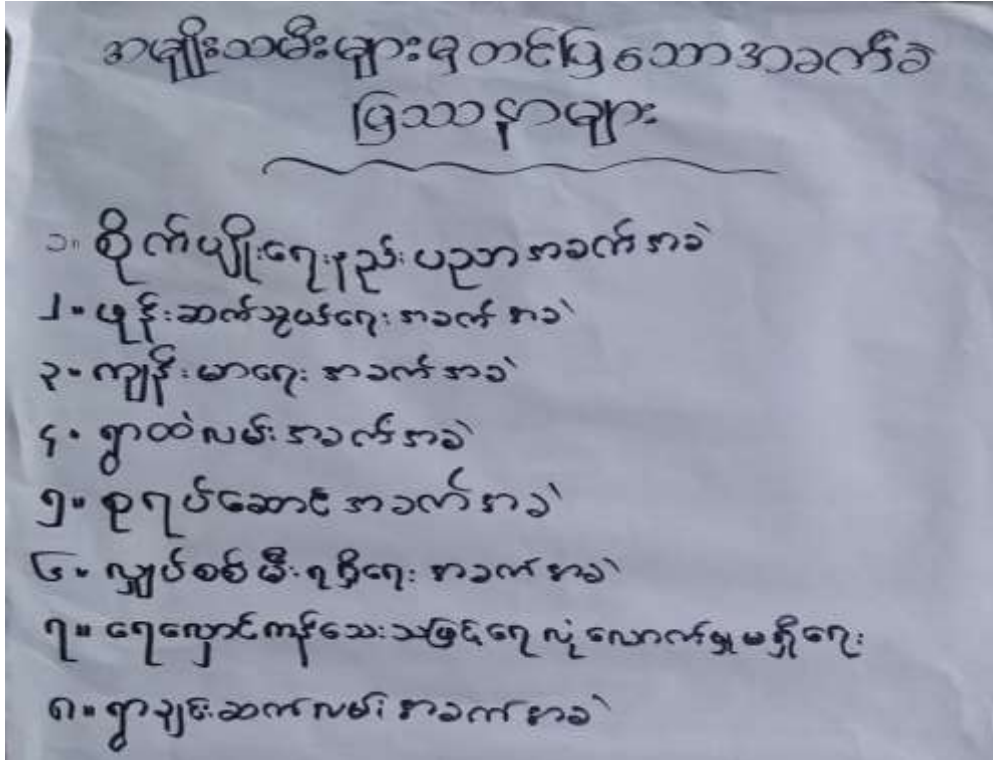 အမျိုးသမီးများမှတင်ပြသောအခက်ခဲ
ပြဿနာများ
၁။ စိုက်ပျိုးရေးနည်းပညာအခက်အခဲ
၂။ ဖုန်းဆက်သွယ်ရေးအခက်အခဲ
၃။ ကျန်းမာရေးအခက်အခဲ
၄။ ရွာထဲလမ်းအခက်အခဲ
၅။ စုရပ်ဆောင်အခက်အခဲ
၆။ လျှပ်စစ်မီးရရှိရေးအခက်အခဲ
၇။ ရေလှောင်ကန်သေးသဖြင့်ရေလုံလောက်မှုမရှိရေး
၈။ ရွာချင်းဆက်လမ်းအခက်အခဲ